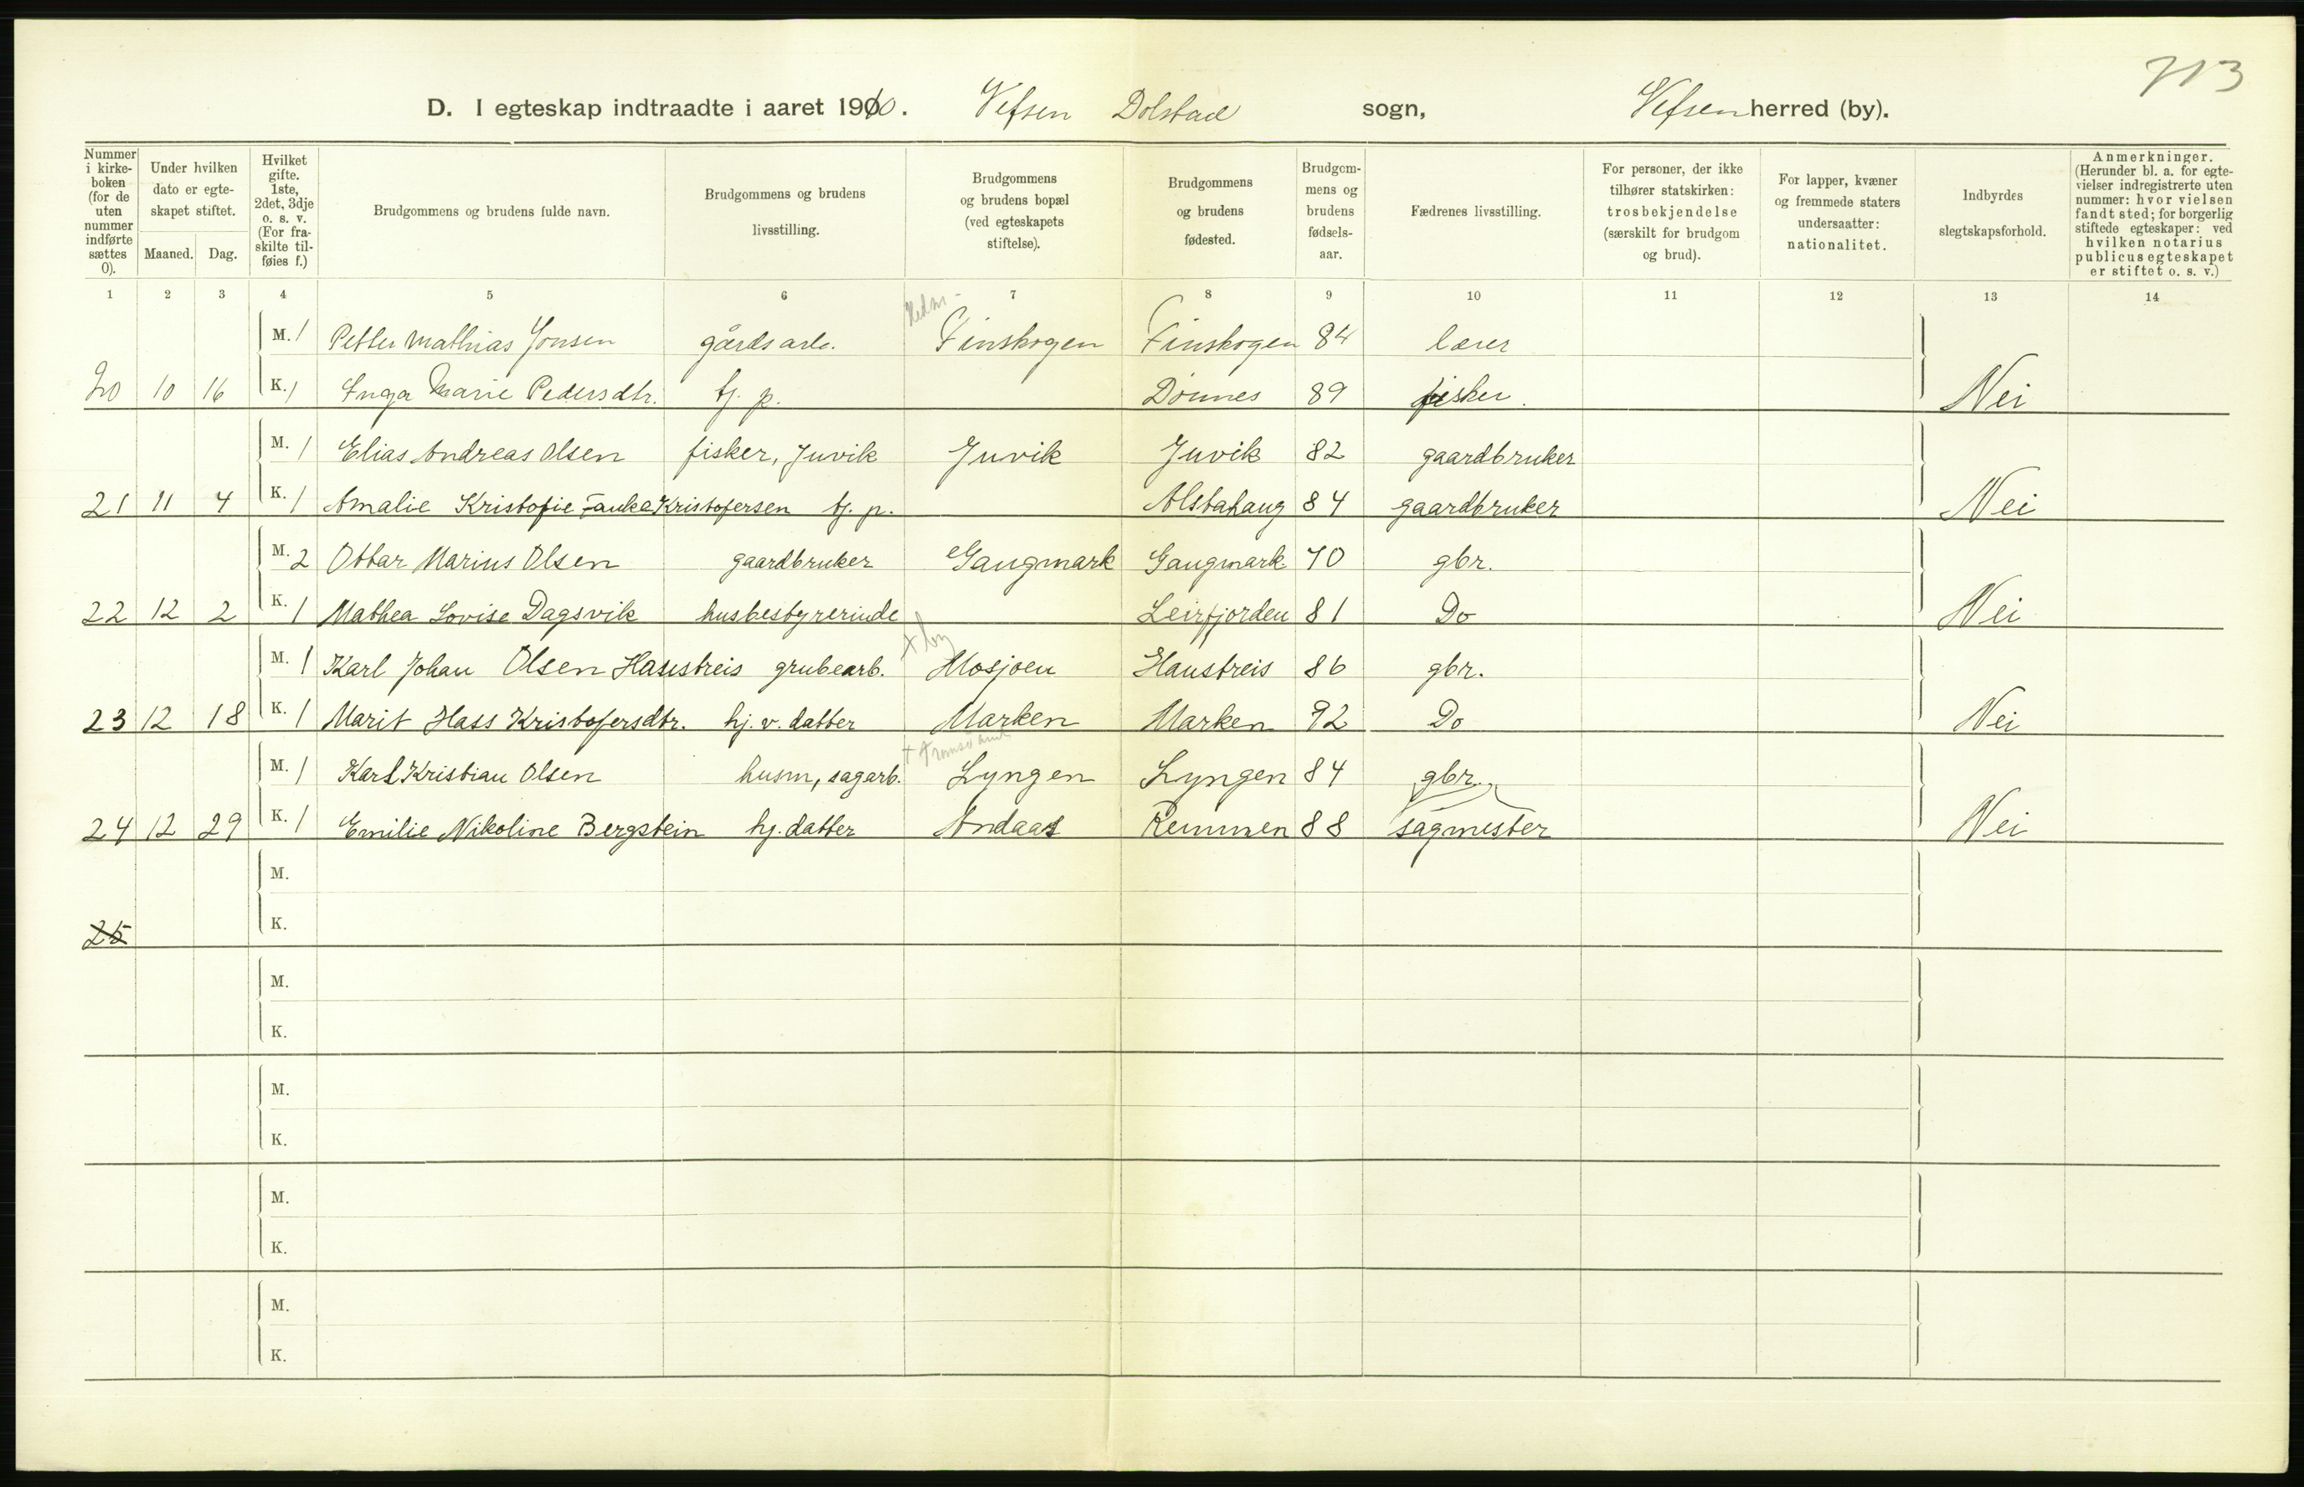 713
D. I egteskap indtraadte i aaret 1910. Vefsen Dolstad sogn, Vefsen herred (by).
Nummer i kirkeboken (for de uten nummer indførte sættes 0).
Under hvilken dato er egteskapet stiftet.
Maaned. Dag.
Hvilket gifte. 1ste, 2det, 3dje o. s. v. (For fraskilte tilføies f.)
Brudgommens og brudens fulde navn.
Brudgommens og brudens livsstilling.
Brudgommens og brudens bopæl (ved egteskapets stiftelse).
Brudgommens og brudens fødested.
Brudgommens og brudens fødselsaar.
Fædrenes livsstilling.
For personer, der ikke tilhører statskirken: trosbekjendelse (særskilt for brudgom og brud).
For lapper, kvæner og fremmede staters undersaatter: nationalitet.
Indbyrdes slegtskapsforhold.
Anmerkninger. (Herunder bl. a. for egtevielser indregistrerte uten nummer: hvor vielsen fandt sted; for borgerlig stiftede egteskaper: ved hvilken notarius publicus egteskapet er stiftet o. s. v.)
1 2 3 4 5 6 7 8 9 10 11 12 13 14
Hedm-
M. 1 Petter Mathias Jonsen gårdsarb. Finskogen Finskogen 84 lærer
20 10 16 K. 1 Inga Marie Pedersdtr. tj. p. Dönnes 89 fisker. Nei
M. 1 Elias Andreas Olsen fisker, Juvik Juvik Juvik 82 gaardbruker
21 11 4 K. 1 Amalie Kristofie Kristofersen tj. p. Alstahaug 84 gaardbruker Nei
M. 2 Ottar Marius Olsen gaardbruker Gaugmark Gaugmark 70 gbr.
22 12 2 K. 1 Mathea Lovise Dagsvik husbestyrerinde Leirfjorden 81 Do Nei
+ by
M. 1 Karl Johan Olsen Haustreis grubearb. Mosjoen Haustreis 86 gbr.
23 12 18 K. 1 Marit Hass Kristofersdtr. hj. v. datter Marken Marken 92 Do Nei
+ Tromsö amt
M. 1 Karl Kristian Olsen husm, sagarb. Lyngen Lyngen 84 gbr.
24 12 29 K. 1 Emilie Nikoline Bergstein hj. datter Andaas Remmen 88 sagmester Nei
M.
25 K.
M.
K.
M.
K.
M.
K.
M.
K.